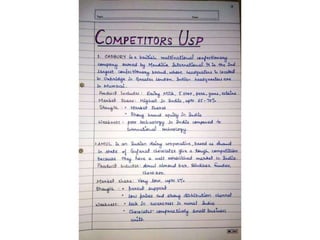 COMPETITORS USP
1. CADBURY is a british multinational confectionery
company owned by Mondelez International. It is the 2nd
largest confectionery brand, whose headquarters is located
in Uxbridge in Greater London. Indian headquarters are
in Mumbai.
Product Includes: Dairy Milk, 5 star, perk, gems, eclairs
Market Share: Highest in India, upto 65-70%
Strength: • Market share
• Strong brand equity in India
Weakness: poor technology in India compared to
International technology.
2. AMUL is an Indian dairy cooperative, based at Anand
in state of Gujarat chocolates give a tough competition
because they have a well established market in India
Product Includes: Amul almond bar, fundoo
choco bar.
Market Share: Very low, upto 5%
Strength: • Brand support
• Low prices and strong distribution channel
Weakness: • Lack in awareness in rural India
• Chocolate comparatively small business
with